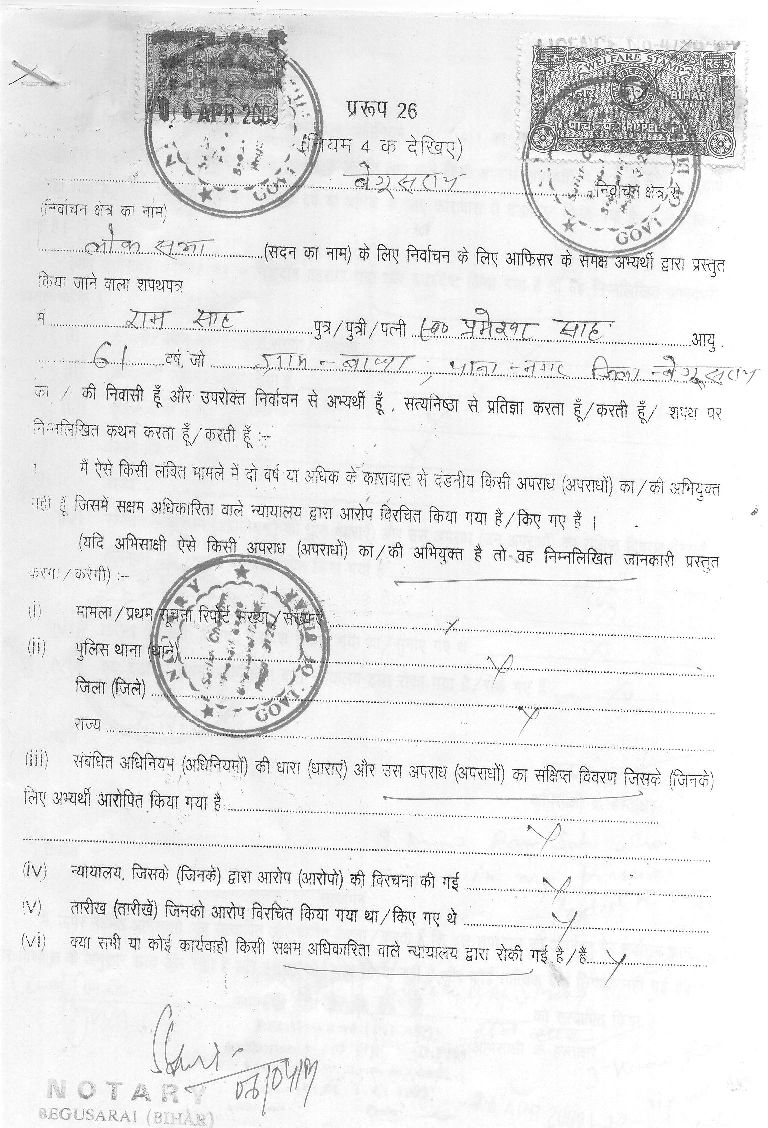 6 APR 2009
WELFARE STAMP
BIHAR
प्ररूप 26
(नियम 4 क देखिए)
बेगूसराय निर्वाचन क्षेत्र से
(निर्वाचन क्षेत्र का नाम)
लोक सभा (सदन का नाम) के लिए निर्वाचन के लिए आफिसर के समक्ष अभ्यर्थी द्वारा प्रस्तुत
किया जाने वाला शपथपत्र
मैं राम साह पुत्र/पुत्री/पत्नी साह आयु
61 वर्ष, जो ग्राम - थाना - नगर जिला - बेगूसराय
का / की निवासी हूँ और उपरोक्त निर्वाचन से अभ्यर्थी हूँ, सत्यनिष्ठा से प्रतिज्ञा करता हूँ/करती हूँ/ शपथ पर
निम्नलिखित कथन करता हूँ/करती हूँ :-
1 मैं ऐसे किसी लंबित मामले में दो वर्ष या अधिक के कारावास से दंडनीय किसी अपराध (अपराधों) का/की अभियुक्त
नहीं हूँ जिसमें सक्षम अधिकारिता वाले न्यायालय द्वारा आरोप विरचित किया गया है/किए गए हैं ।
(यदि अभिसाक्षी ऐसे किसी अपराध (अपराधों) का/की अभियुक्त है तो वह निम्नलिखित जानकारी प्रस्तुत
करेगा/करेगी) :-
(i) मामला/प्रथम सूचना रिपोर्ट संख्या/संख्याएं x
(ii) पुलिस थाना (थाने) x
जिला (जिले) x
राज्य
(iii) संबंधित अधिनियम (अधिनियमों) की धारा (धाराएं) और उस अपराध (अपराधों) का संक्षिप्त विवरण जिसके (जिनके)
लिए अभ्यर्थी आरोपित किया गया है
x
(iv) न्यायालय, जिसके (जिनके) द्वारा आरोप (आरोपों) की विरचना की गई x
(v) तारीख (तारीखें) जिनको आरोप विरचित किया गया था/किए गए थे x
(vi) क्या सभी या कोई कार्यवाही किसी सक्षम अधिकारिता वाले न्यायालय द्वारा रोकी गई है/हैं x
NOTARY
BEGUSARAI (BIHAR)
NOTARY
GOVT. OF